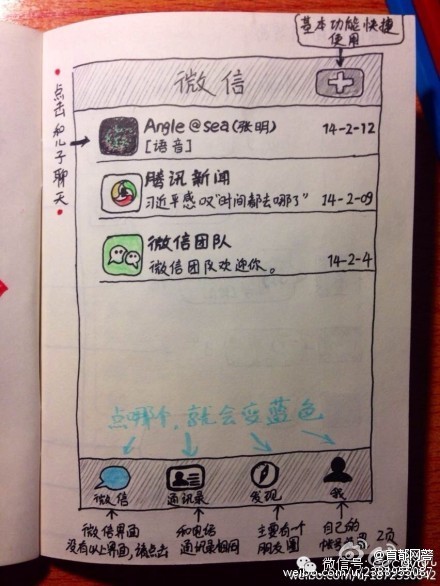 基本功能快捷
使用
微信
点击和儿子聊天
Angle@sea(张明)
14-2-12
[语音]
腾讯新闻
习近平感叹"时间都去哪了"
14-2-09
微信团队
微信团队欢迎你。
14-2-4
点哪个,就会变蓝色
微信
通讯录
发现
我
微信界面
没有以上界面,请点击
和电信
通讯录相同
主要有个
朋友圈
自己的
2页
@首都网警
微信号:
weibo.com/u/2388955087